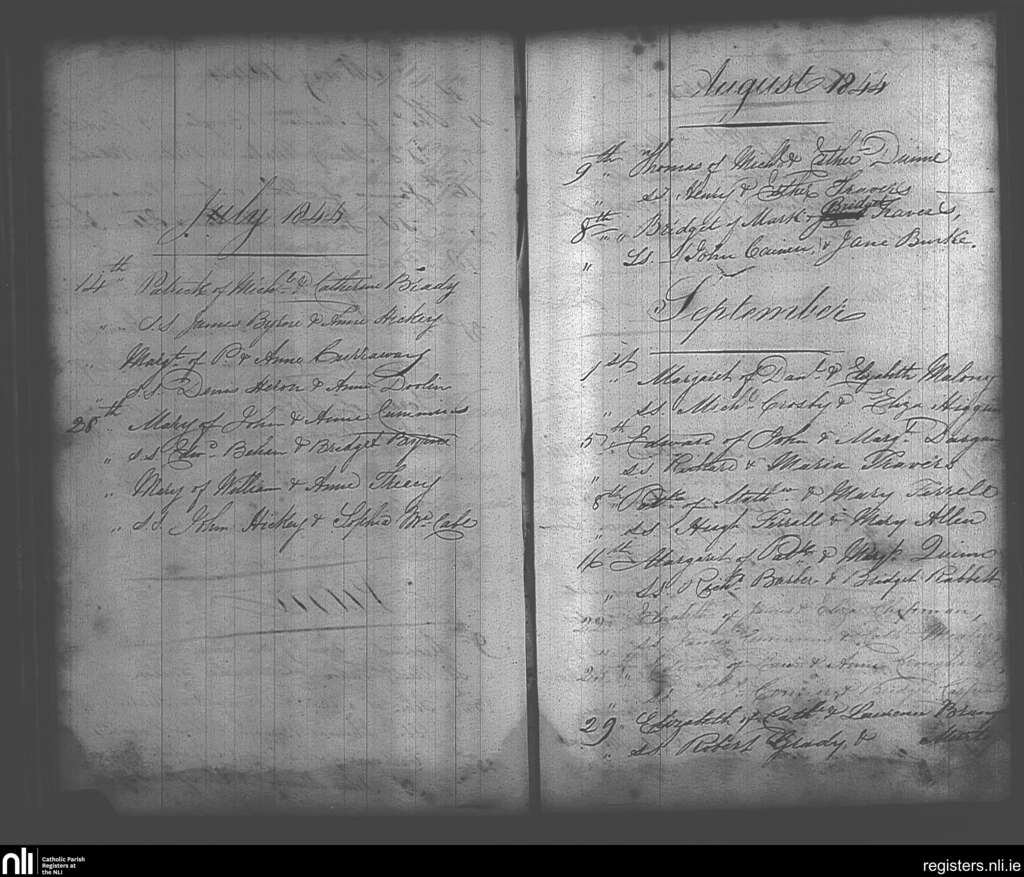 July 1844
14th " Patrick of Michl. & Catherine Brady
" S.S James Byrne & Anne Hickey
" Margt. of P. & Anne
" S.S. Denis Heron & Anne Doolin
28th Mary of John & Anne Cummins
" S.S Edwd. Behan & Bridget Byrne
" Mary of William & Anne Treacy
" S.S. John Hickey & Sophia Mc. Cabe
August 1844
9th " Thomas of Michl & Esther Dunne
" ss Henry & Esther Travers
8th " " Bridget of Mark & Bridget Travers,
" Ss. John & Jane Burke.
September
1st " Margaret of Danl. & Elizabeth Malony
" SS. Michl. Crosby & Eliza
5th " Edward of John & Margt. Dargan
" SS Richard & Maria Travers
8th " Patk of & Mary Farrell
" SS Hugh Ferrall & Mary Allen
16th Margaret of Patk & Mary Quinn
" SS. Richd Barber & Bridget Rabbett
Elizabeth of James & Eliza Chapman,
ss James &
of & Anne
ss & Bridget
29 " Elizabeth of Cathe & Lawrence
" SS. Robert Grady, &
nli
Catholic Parish
Registers at
the NLI
registers.nli.ie